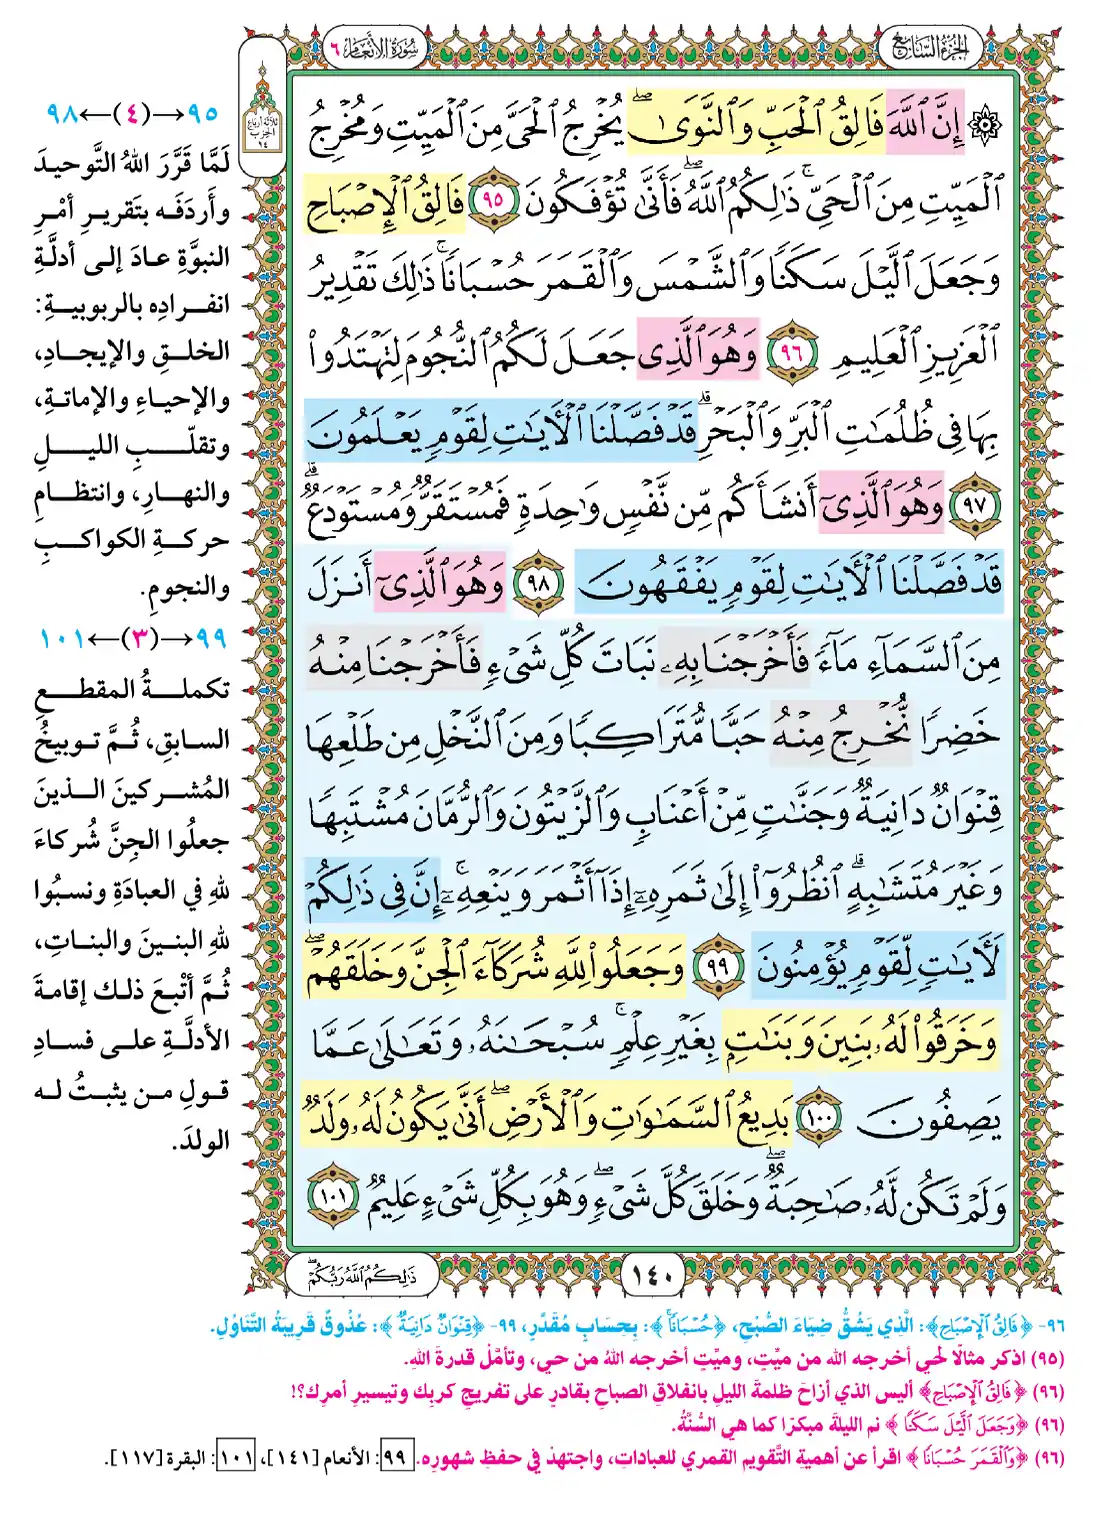 الجزء السابع
سورة الأنعام ٦
ثلاثة أرباع
الحزب
١٤
۞ إِنَّ ٱللَّهَ فَالِقُ ٱلْحَبِّ وَٱلنَّوَىٰۖ يُخْرِجُ ٱلْحَىَّ مِنَ ٱلْمَيِّتِ وَمُخْرِجُ
ٱلْمَيِّتِ مِنَ ٱلْحَىِّۚ ذَٰلِكُمُ ٱللَّهُۖ فَأَنَّىٰ تُؤْفَكُونَ ٩٥ فَالِقُ ٱلْإِصْبَاحِ
وَجَعَلَ ٱلَّيْلَ سَكَنًا وَٱلشَّمْسَ وَٱلْقَمَرَ حُسْبَانًاۚ ذَٰلِكَ تَقْدِيرُ
ٱلْعَزِيزِ ٱلْعَلِيمِ ٩٦ وَهُوَ ٱلَّذِى جَعَلَ لَكُمُ ٱلنُّجُومَ لِتَهْتَدُوا۟
بِهَا فِى ظُلُمَٰتِ ٱلْبَرِّ وَٱلْبَحْرِۗ قَدْ فَصَّلْنَا ٱلْـَٔايَٰتِ لِقَوْمٍ يَعْلَمُونَ
٩٧ وَهُوَ ٱلَّذِىٓ أَنشَأَكُم مِّن نَّفْسٍ وَٰحِدَةٍ فَمُسْتَقَرٌّ وَمُسْتَوْدَعٌۗ
قَدْ فَصَّلْنَا ٱلْـَٔايَٰتِ لِقَوْمٍ يَفْقَهُونَ ٩٨ وَهُوَ ٱلَّذِىٓ أَنزَلَ
مِنَ ٱلسَّمَآءِ مَآءً فَأَخْرَجْنَا بِهِۦ نَبَاتَ كُلِّ شَىْءٍ فَأَخْرَجْنَا مِنْهُ
خَضِرًا نُّخْرِجُ مِنْهُ حَبًّا مُّتَرَاكِبًا وَمِنَ ٱلنَّخْلِ مِن طَلْعِهَا
قِنْوَانٌ دَانِيَةٌ وَجَنَّٰتٍ مِّنْ أَعْنَابٍ وَٱلزَّيْتُونَ وَٱلرُّمَّانَ مُشْتَبِهًا
وَغَيْرَ مُتَشَٰبِهٍۗ ٱنظُرُوٓا۟ إِلَىٰ ثَمَرِهِۦٓ إِذَآ أَثْمَرَ وَيَنْعِهِۦٓۚ إِنَّ فِى ذَٰلِكُمْ
لَـَٔايَٰتٍ لِّقَوْمٍ يُؤْمِنُونَ ٩٩ وَجَعَلُوا۟ لِلَّهِ شُرَكَآءَ ٱلْجِنَّ وَخَلَقَهُمْۖ
وَخَرَقُوا۟ لَهُۥ بَنِينَ وَبَنَٰتٍۭ بِغَيْرِ عِلْمٍۚ سُبْحَٰنَهُۥ وَتَعَٰلَىٰ عَمَّا
يَصِفُونَ ١٠٠ بَدِيعُ ٱلسَّمَٰوَٰتِ وَٱلْأَرْضِۖ أَنَّىٰ يَكُونُ لَهُۥ وَلَدٌ
وَلَمْ تَكُن لَّهُۥ صَٰحِبَةٌۖ وَخَلَقَ كُلَّ شَىْءٍۖ وَهُوَ بِكُلِّ شَىْءٍ عَلِيمٌ ١٠١
١٤٠
ذَٰلِكُمُ ٱللَّهُ رَبُّكُمْۖ
٩٥→(٤)←٩٨
لَمَّا قَرَّرَ اللهُ التَّوحيدَ
وأردَفَه بتَقريرِ أمْرِ
النبوَّةِ عادَ إلى أدلَّةِ
انفرادِه بالربوبيةِ:
الخلقِ والإيجادِ،
والإحياءِ والإماتةِ،
وتقلّبِ الليلِ
والنهارِ، وانتظامِ
حركةِ الكواكبِ
والنجومِ.
٩٩→(٣)←١٠١
تكملةُ المقطعِ
السابقِ، ثُمَّ توبيخُ
المُشركينَ الذينَ
جعلُوا الجِنَّ شُركاءَ
للهِ في العبادَةِ ونسبُوا
للهِ البنينَ والبناتِ،
ثُمَّ أتْبعَ ذلك إقامةَ
الأدلَّةِ على فسادِ
قولِ من يثبتُ له
الولدَ.
٩٦- ﴿فَالِقُ ٱلْإِصْبَاحِ﴾: الَّذِي يَشُقُّ ضِيَاءَ الصُّبْحِ، ﴿حُسْبَانًاۚ﴾: بِحِسَابٍ مُقَدَّرٍ، ٩٩- ﴿قِنْوَانٌ دَانِيَةٌ﴾: عُذُوقٌ قَرِيبَةُ التَّنَاوُلِ.
(٩٥) اذكر مثالًا لحي أخرجه الله من ميِّتٍ، وميِّتٍ أخرجه اللهُ من حي، وتأمَّلْ قدرةَ اللهِ.
(٩٦) ﴿فَالِقُ ٱلْإِصْبَاحِ﴾ أليس الذي أزاحَ ظلمةَ الليلِ بانفلاقِ الصباحِ بقادرٍ على تفريجِ كربِك وتيسيرِ أمرِك؟!
(٩٦) ﴿وَجَعَلَ ٱلَّيْلَ سَكَنًا﴾ نم الليلةَ مبكرًا كما هي السُّنَّةُ.
(٩٦) ﴿وَٱلْقَمَرَ حُسْبَانًا﴾ اقرأ عن أهميةِ التَّقويمِ القمري للعباداتِ، واجتهدْ في حفظِ شهورِه. ٩٩: الأنعام [١٤١]، ١٠١: البقرة [١١٧].